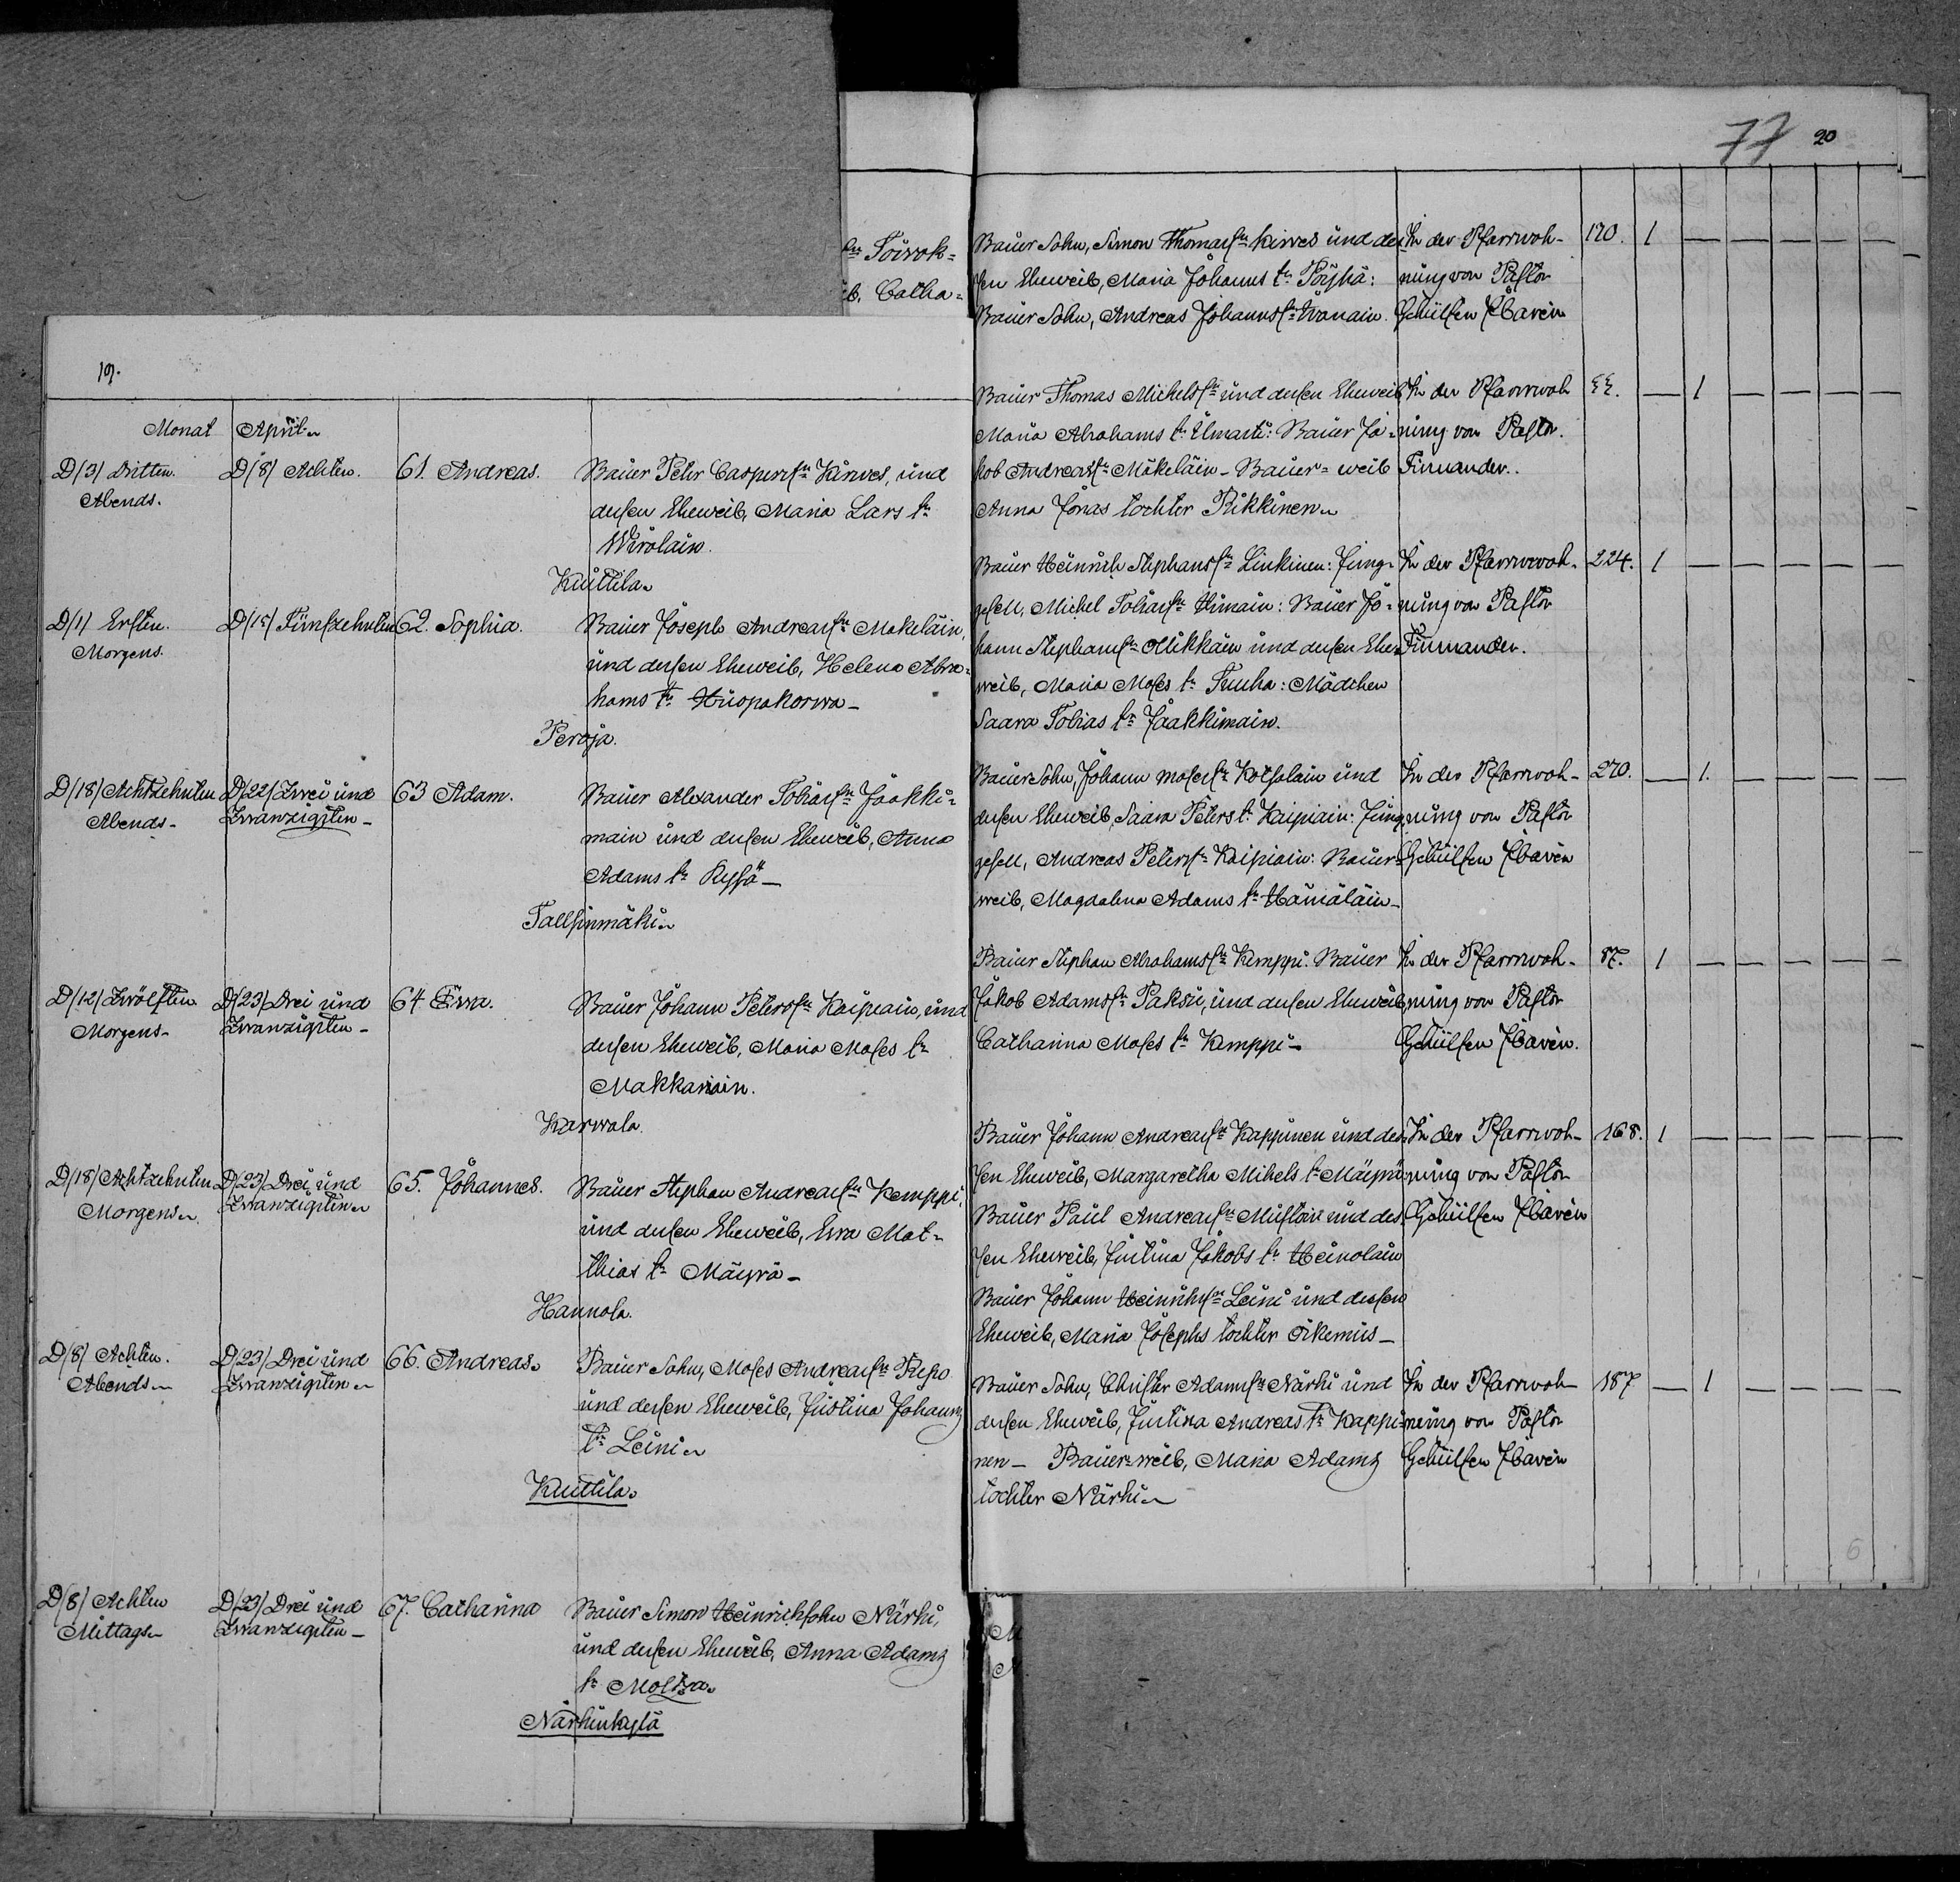 19.
Monat April
D/3/ Dritten
Abends.
D/8/ Achten.
61. Andreas.
Bauer Peter Caspersſn Kirves, und
deſsen Eheweib, Maria Lars tr
Wirolain.
Kuttila
D/1/ Erſten.
Morgens.
D/15/ Fünfzehnten
62. Sophia.
Bauer Joseph Andreasſn Mäkeläin,
und deſsen Eheweib, Helena Abra-
hams tr Huopakorwa
Peroja.
D/18/ Achtzehnten
Abends
D/22/ Zwei und
Zwanzigſten
63 Adam.
Bauer Alexander Tobiasſn Jaakki-
main und deſsen Eheweib, Anna
Adams tr Kyſsä
Tallſinmäki
D/12/ Zwölften
Morgens
D/23/ Drei und
Zwanzigſten
64 Ewa.
Bauer Johann Petersſn Kaipiain, und
deſsen Eheweib, Maria Moſes tr
Makkarain.
Karwala.
D/18/ Achtzehnten
Morgens
D/23/ Drei und
Zwanzigſten
65. Johannes.
Bauer Stephan Andreasſn Kemppi,
und deſsen Eheweib, Ewa Mat-
thias tr Mäyrä
Hannola.
D/8/ Achten.
Abends
D/23/ Drei und
Zwanzigſten
66. Andreas
Bauer Sohn, Moſes Andreasſn Repo
und deſsen Eheweib, Juſtina Johanns
tr Leini
Kuttila
D/8/ Achten
Mittags
D/23/ Drei und
Zwanzigſten
67. Catharina
Bauer Simon Heinrichſohn Närhi,
und deſsen Eheweib, Anna Adams
tr Moltsa
Närhinkylä
ſn Toiwok=
ib. Catha=
77 20
Bauer Sohn, Simon Thomasſn Kirves und deſ-
ſen Eheweib, Maria Johanns tr Pöyhä:
Bauer Sohn, Andreas Johannsſn Iwanain.
In der Pfarrwoh-
nung von Paſtor
Gehülfen Häven
170. 1 — — — — —
Bauer Thomas Michelsſn und deſsen Eheweib
Maria Abrahams tr Ilmarti: Bauer Ja-
kob Andreasſn Mäkeläin - Bauer-weib
Anna Jonas tochter Pikkinen
In der Pfarrwoh
nung von Paſtor.
Firnander.
55. — 1 — — — —
Bauer Heinrich Stephansſn Linkinen: Jung-
geſell, Michel Tobiasſn Himain: Bauer Jo-
hann Stephansſn Mikkäin und deſsen Ehe-
weib, Maria Moſes tr Turha: Mädchen
Saara Tobias tr Jaakkimain.
In der Pfarrwoh-
nung von Paſtor
Firnander.
224. 1 — — — — —
Bauer Sohn, Johann Moſesſn Kotſalain und
deſsen Eheweib, Saara Peters tr Kaipiain: Jung
geſell, Andreas Petersſn Kaipiain: Bauer-
weib, Magdalena Adams tr Hämäläin
In der Pfarrwoh-
nung von Paſtor
Gehülfen Häven
270. — 1. — — — —
Bauer Stephan Abrahamsſn Kemppi: Bauer
Jakob Adamsſn Paksu, und deſsen Eheweib
Catharina Moſes tr Kemppi
In der Pfarrwoh-
nung von Paſtor
Gehülfen Häven.
87. 1 — — — — —
Bauer Johann Andreasſn Kappinen und deſ-
ſen Eheweib, Margaretha Mihels tr Mäyrä
Bauer Paul Andreasſn Muſtoin und deſ-
ſen Eheweib, Juſtina Jakobs tr Heinolain
Bauer Johann Heinrichsſn Leini und deſsen
Eheweib, Maria Joſephs tochter Oikemus
In der Pfarrwoh-
nung von Paſtor
Gehülfen Häven
168. 1 — — — — —
Bauer Sohn, Chriſter Adamsſn Närhi und
deſsen Eheweib, Juſtina Andreas tr Kappi-
nen — Bauer-weib, Maria Adams
tochter Närhi
In der Pfarrwoh
nung von Paſtor
Gehülfen Häven
187 — 1 — — — —
6